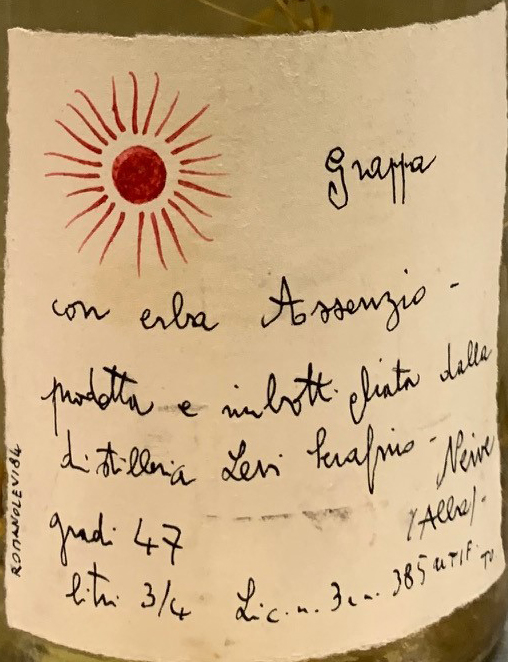 Grappa
con erba Assenzio -
prodotta e imbottigliata dalla
distilleria Levi Serafino - Neive
(Alba) -
gradi 47
litri 3/4 Lic. n. 3 e n. 385 UTIF. TO.
ROMANOLEVI84